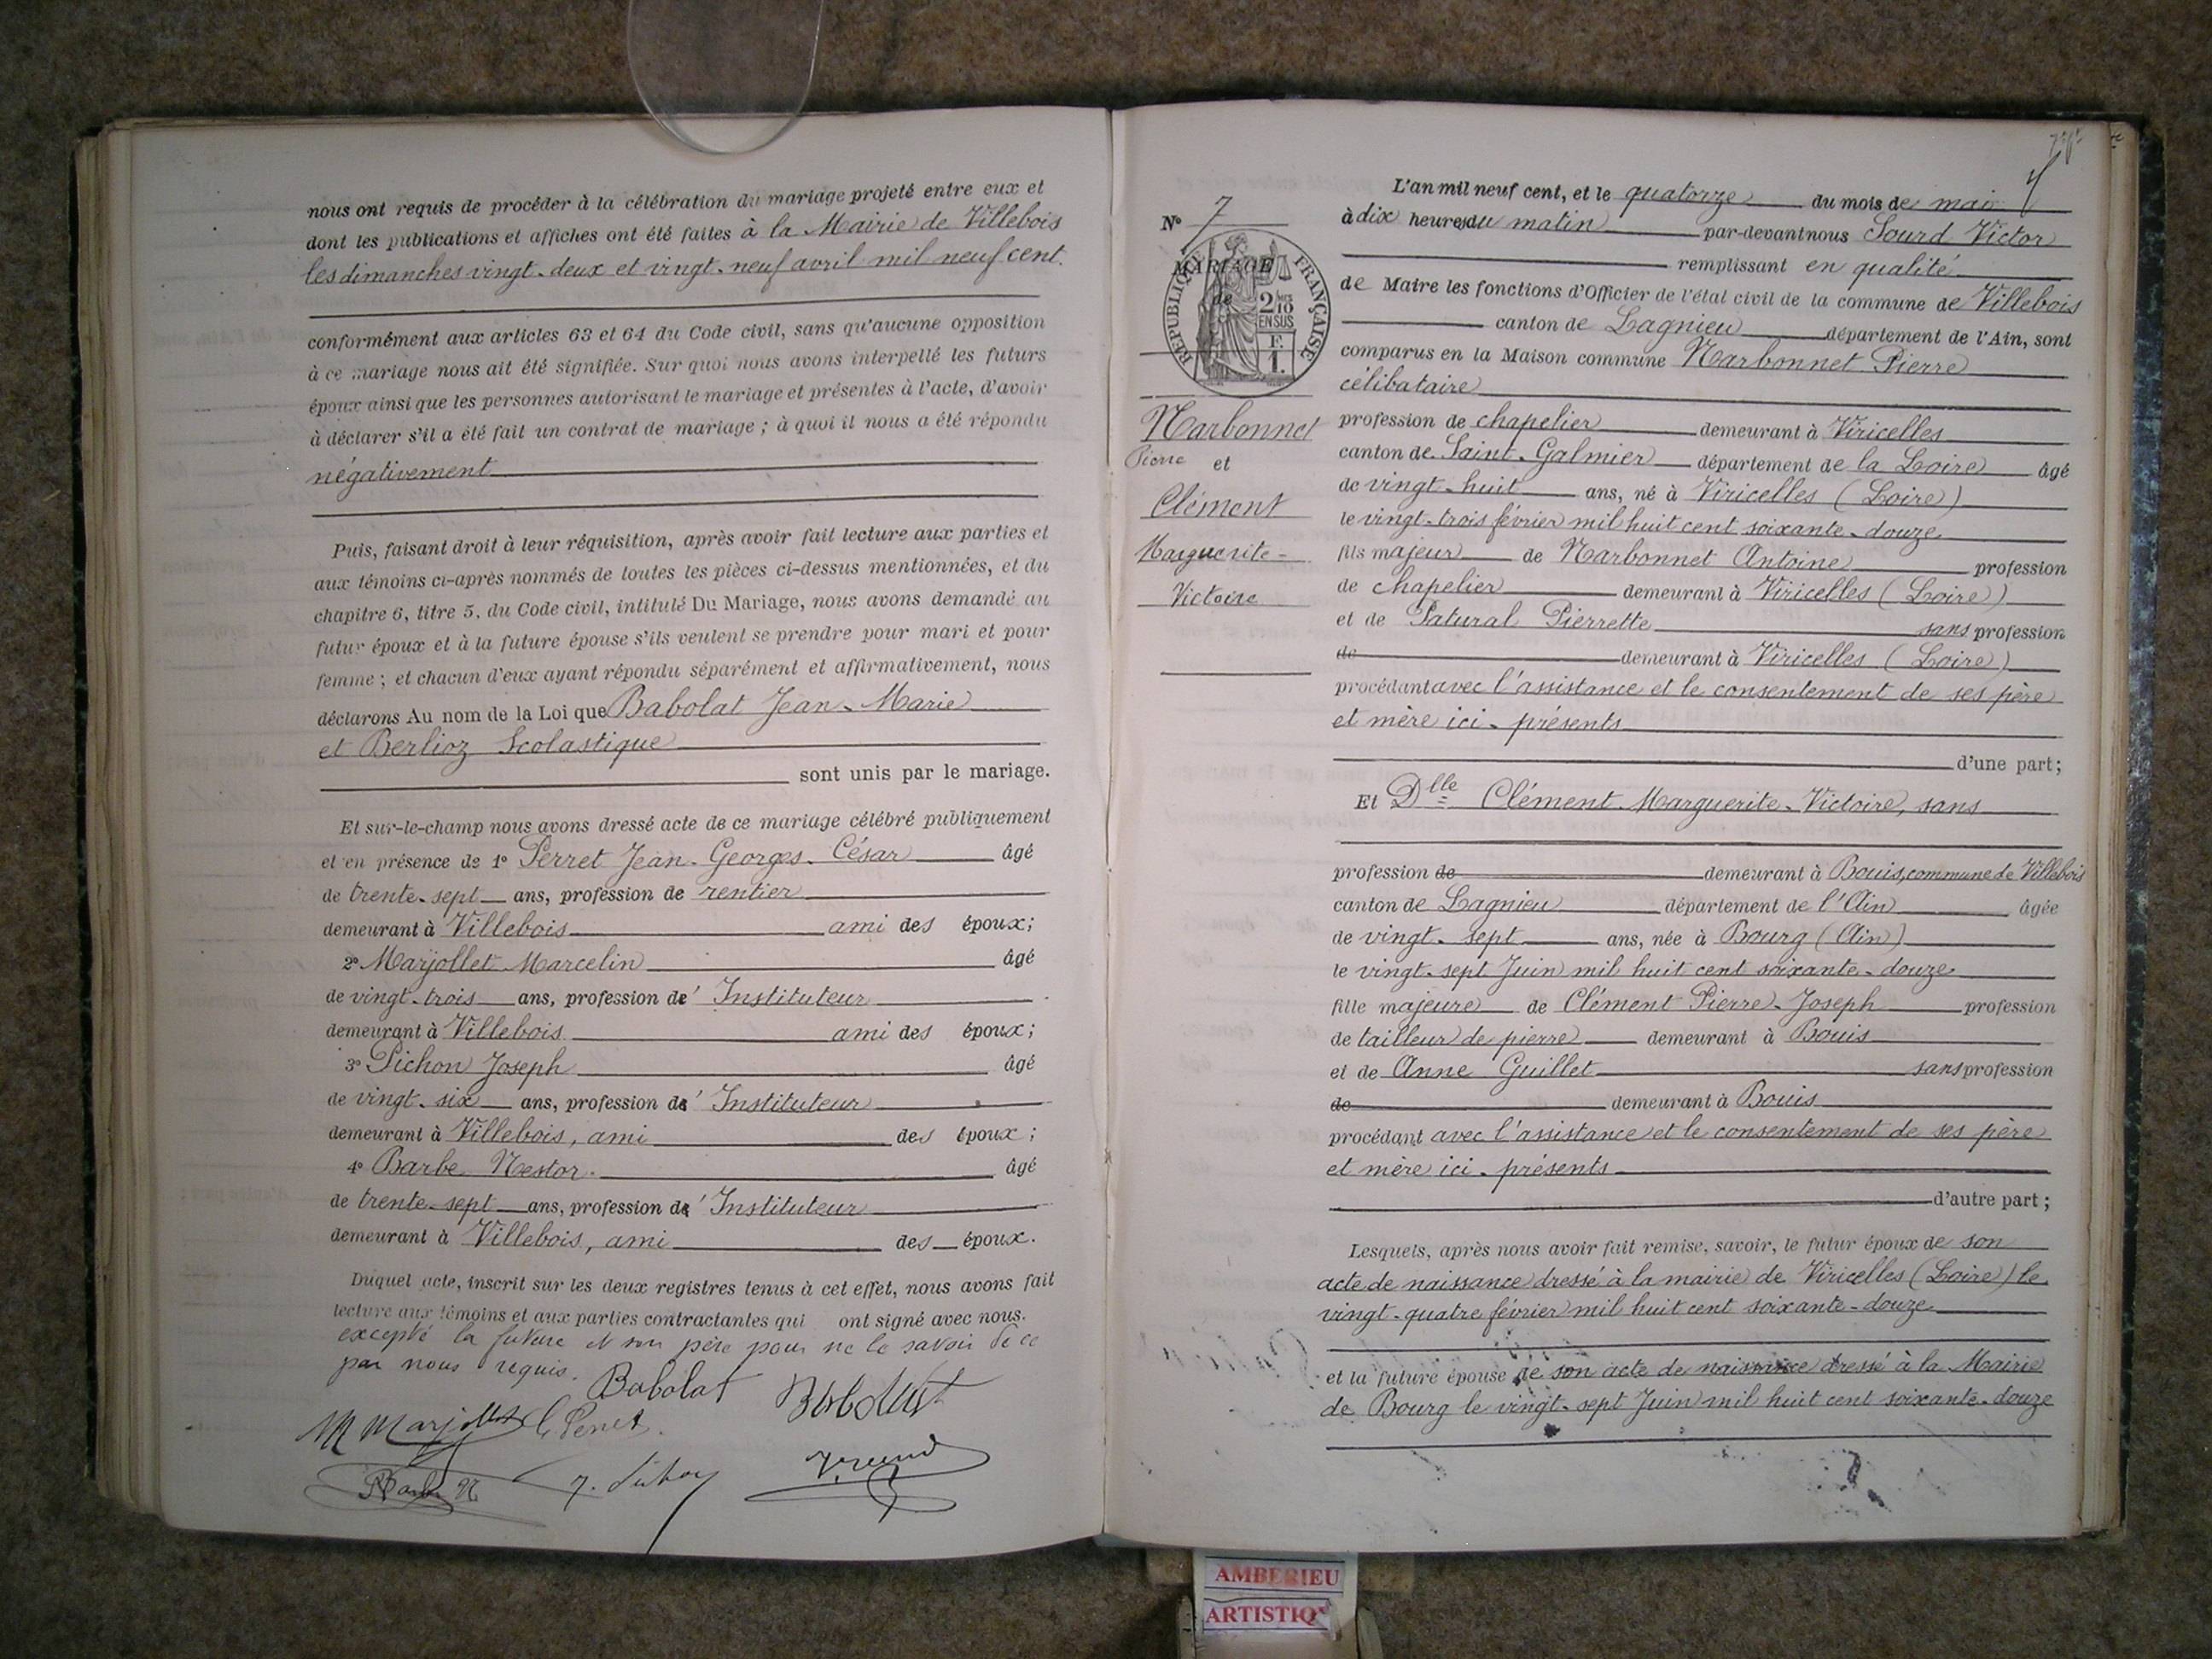 nous ont requis de procéder à la célébration du mariage projeté entre eux et
dont les publications et affiches ont été faites à la Mairie de Villebois
les dimanches vingt-deux et vingt-neuf avril mil neuf cent.
conformément aux articles 63 et 64 du Code civil, sans qu'aucune opposition
à ce mariage nous ait été signifiée. Sur quoi nous avons interpellé les futurs
époux ainsi que les personnes autorisant le mariage et présentes à l'acte, d'avoir
à déclarer s'il a été fait un contrat de mariage ; à quoi il nous a été répondu
négativement
Puis, faisant droit à leur réquisition, après avoir fait lecture aux parties et
aux témoins ci-après nommés de toutes les pièces ci-dessus mentionnées, et du
chapitre 6, titre 5, du Code civil, intitulé Du Mariage, nous avons demandé au
futur époux et à la future épouse s'ils veulent se prendre pour mari et pour
femme ; et chacun d'eux ayant répondu séparément et affirmativement, nous
déclarons Au nom de la Loi que Babolat Jean-Marie
et Berlioz Scolastique
sont unis par le mariage.
Et sur-le-champ nous avons dressé acte de ce mariage célébré publiquement
et en présence de 1° Perret Jean-Georges-César âgé
de trente-sept ans, profession de rentier
demeurant à Villebois ami des époux;
2° Marjollet Marcelin âgé
de vingt-trois ans, profession d' Instituteur
demeurant à Villebois ami des époux;
3° Pichon Joseph âgé
de vingt-six ans, profession d' Instituteur
demeurant à Villebois, ami des époux;
4° Barbe Nestor. âgé
de trente-sept ans, profession d' Instituteur
demeurant à Villebois, ami des époux.
Duquel acte, inscrit sur les deux registres tenus à cet effet, nous avons fait
lecture aux témoins et aux parties contractantes qui ont signé avec nous.
excepté la future et son père pour ne le savoir de ce
par nous requis. Babolat
M Marjollet
N° 7
MARIAGE
de
RÉPUBLIQUE FRANÇAISE
2/10
EN SUS
F.
1.
Narbonnet
Pierre et
Clément
Marguerite-
Victoire
L'an mil neuf cent, et le quatorze du mois de mai
à dix heures du matin par-devant nous Sourd Victor
remplissant en qualité
de Maire les fonctions d'Officier de l'état civil de la commune de Villebois
canton de Lagnieu département de l'Ain, sont
comparus en la Maison commune Narbonnet Pierre
célibataire
profession de chapelier demeurant à Viricelles
canton de Saint-Galmier département de la Loire âgé
de vingt-huit ans, né à Viricelles (Loire)
le vingt-trois février mil huit cent soixante-douze
fils majeur de Narbonnet Antoine profession
de chapelier demeurant à Viricelles (Loire)
et de Patural Pierrette sans profession
de demeurant à Viricelles (Loire)
procédant avec l'assistance et le consentement de ses père
et mère ici-présents
d'une part;
Et Dlle Clément Marguerite-Victoire, sans
profession de demeurant à Bouis, commune de Villebois
canton de Lagnieu département de l'Ain âgée
de vingt-sept ans, née à Bourg (Ain)
le vingt-sept Juin mil huit cent soixante-douze
fille majeure de Clément Pierre-Joseph profession
de tailleur de pierre demeurant à Bouis
et de Anne Guillet sans profession
de demeurant à Bouis
procédant avec l'assistance et le consentement de ses père
et mère ici-présents
d'autre part;
Lesquels, après nous avoir fait remise, savoir, le futur époux de son
acte de naissance dressé à la mairie de Viricelles (Loire) le
vingt-quatre février mil huit cent soixante-douze
et la future épouse de son acte de naissance dressé à la Mairie
de Bourg le vingt-sept Juin mil huit cent soixante-douze
AMBERIEU
ARTISTIQ